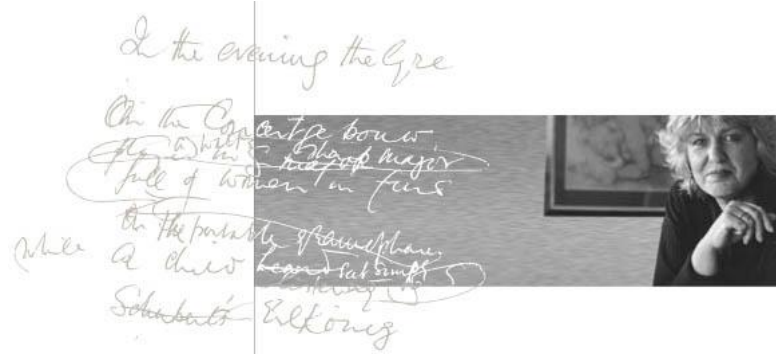 In the evening the Lyre
On the Concertgebouw
sharp major
full of women in furs
On the portable gramophone
while a child heard sat
listening to
Schubert's Erlkönig